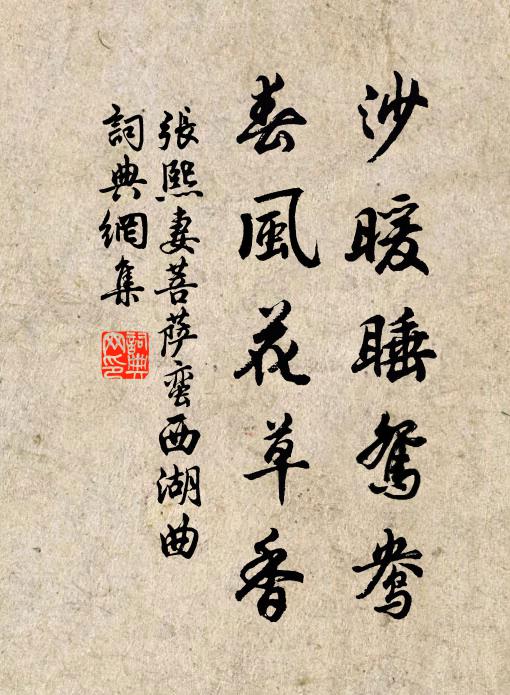 沙暖睡鴛鴦
春風花草香
張熙妻菩萨蛮西湖曲
詞典網集
詞典网印